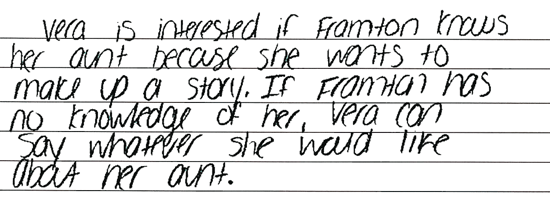 Vera is interested if Framton knows
her aunt because she wants to
make up a story. If Framton has
no knowledge of her, Vera can
say whatever she would like
about her aunt.